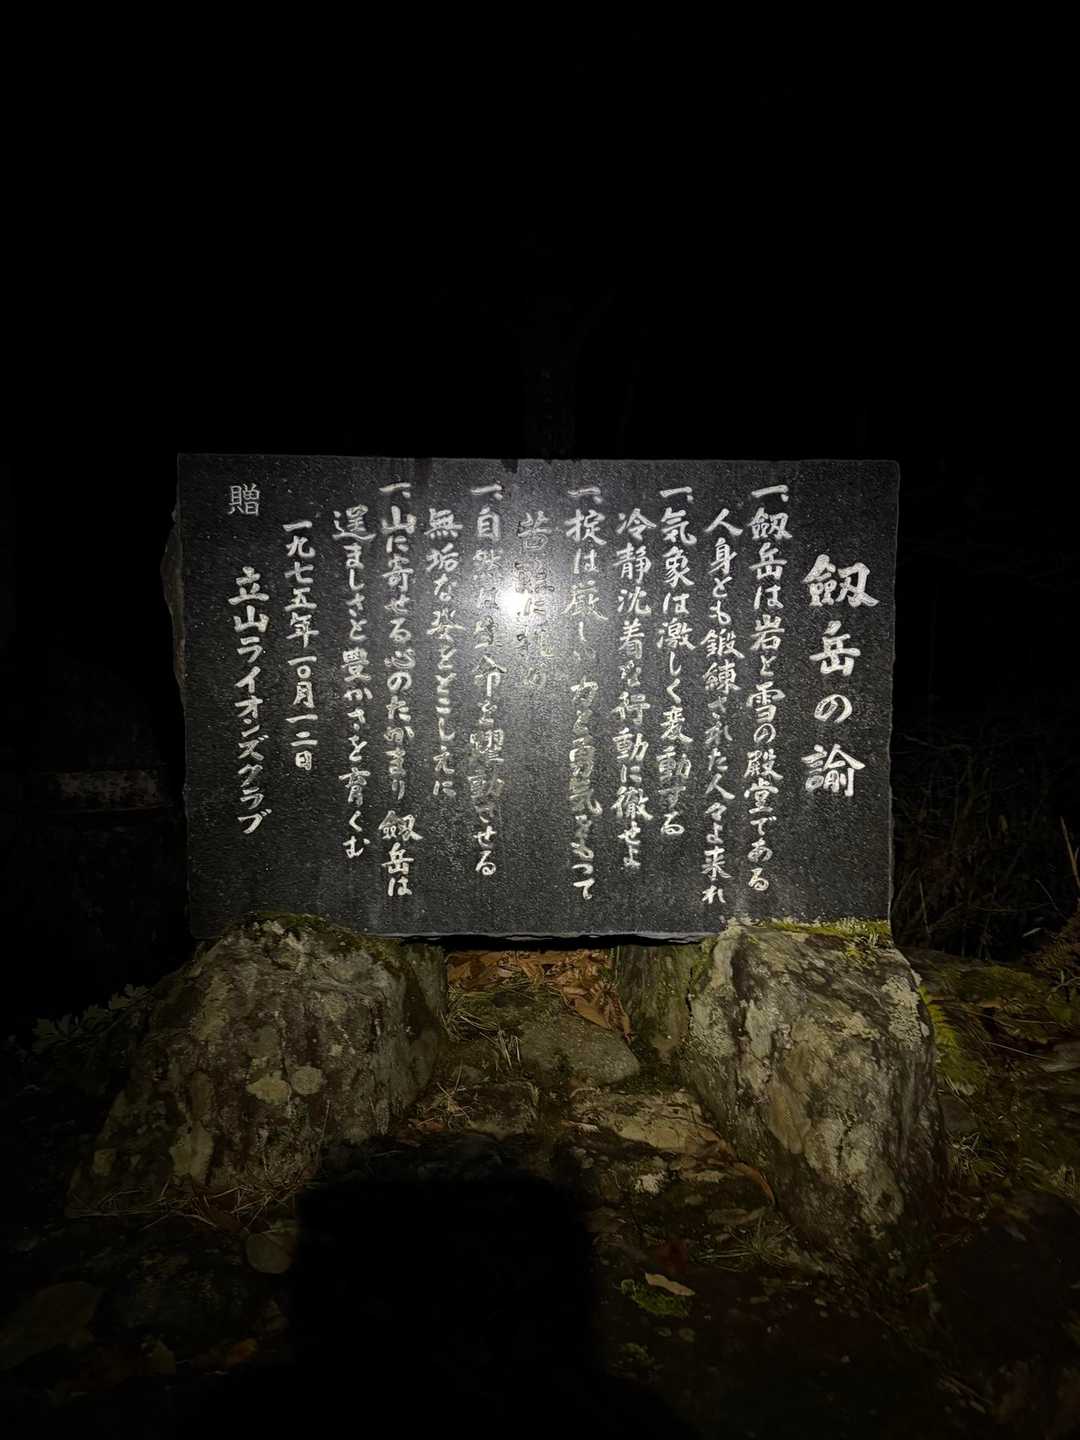 劔岳の諭
一、劔岳は岩と雪の殿堂である
人身とも鍛練された人々よ来れ
一、気象は激しく変動する
冷静沈着な行動に徹せよ
一、掟は厳しい 力と勇気をもって
苦難に
一、自然は生命を躍動させる
無垢な姿をとこしえに
一、山に寄せる心のたかまり 劔岳は
逞ましさと豊かさを育くむ
一九七五年一〇月一二日
贈 立山ライオンズクラブ